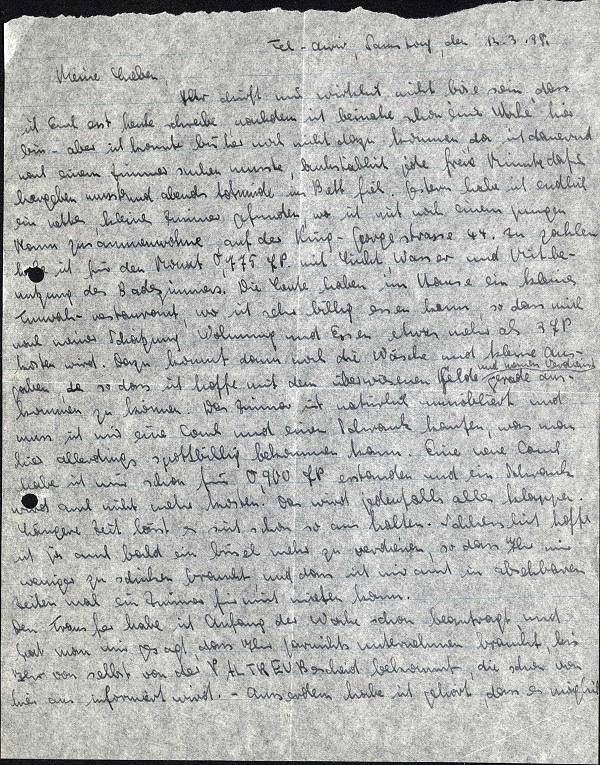 Tel-Aviv, Samstag, den 12.3.38.
Meine Lieben,
Ihr dürft mir wirklich nicht böse sein, dass
ich Euch erst heute schreibe nachdem ich beinahe schon eine Woche hier
bin - aber ich konnte bisher noch nicht dazu kommen, da ich dauernd
nach einem Zimmer suchen musste, buchstäblich jede freie Minute dafür
hergeben musste und abends totmüde ins Bett fiel. Gestern habe ich endlich
ein nettes, kleines Zimmer gefunden, wo ich mit noch einem jungen
Mann zusammenwohne, auf der King-Georgestrasse 44. Zu zahlen
habe ich für den Monat 0,775 LP. mit Licht Wasser und Mitbe-
nutzung des Badezimmers. Die Leute haben im Hause ein kleines
restaurant, wo ich sehr billig essen kann, so dass mich
nach meiner Schätzung Wohnung und Essen etwas mehr als 3 LP
kosten wird. Dazu kommt dann noch die Wäsche und kleine Aus-
gaben so dass ich hoffe mit dem überwiesenen Gelde und meinem Verdienst gerade aus-
kommen zu können. Das Zimmer ist natürlich unmöbliert und
muss ich mir eine Couch und einen Schrank kaufen, was man
hier allerdings spottbillig bekommen kann. Eine neue Couch
habe ich mir schon für 0,900 LP erstanden und ein Schrank
wird auch nicht mehr kosten. Das wird jedenfalls alles klappen.
Längere Zeit lässt es sich schon so aushalten. Schliesslich hoffe
ich ja auch bald ein bissel mehr zu verdienen, so dass Ihr mir
weniger zu schicken braucht und dass ich mir auch in absehbaren
Zeiten mal ein Zimmer für mich mieten kann.
Den Transfer habe ich Anfang der Woche schon beantragt und
hat man mir gesagt dass Ihr garnichts unternehmen braucht, bis
Ihr von selbst von der PALTREU Bescheid bekommt, die schon von
hier aus informiert wird. - Ausserdem habe ich gehört, dass es möglich